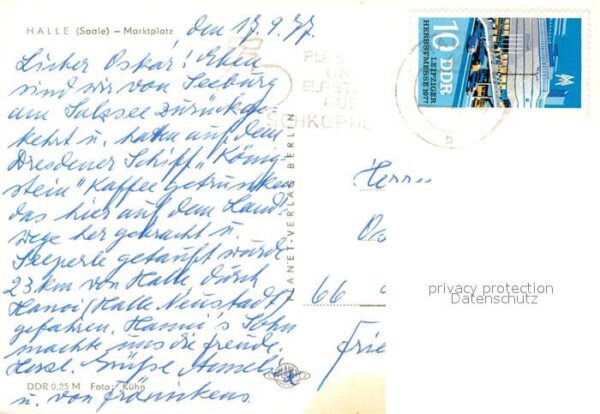 HALLE (Saale) – Marktplatz
den 17.9.77.
Lieber Oskar! Eben
sind wir von Seeburg
am Salzsee zurückge-
kehrt u. haben auf dem
Dresdener Schiff „König-
stein" Kaffee getrunken
das hier auf dem Land-
wege her gebracht u.
Seeperle getauft wurde
23 km von Halle durch
Hanoi/Halle Neustadt
gefahren. Hanni's Sohn
machte uns die Freude.
Herzl. Grüße
u. von
DDR 0,25 M Foto: Kühn
PLANET-VERLAG BERLIN
UND
ELASTE
AUS
SCHKOPAU
10 DDR
LEIPZIGER
HERBSTMESSE 1977
Herrn
66
privacy protection
Datenschutz